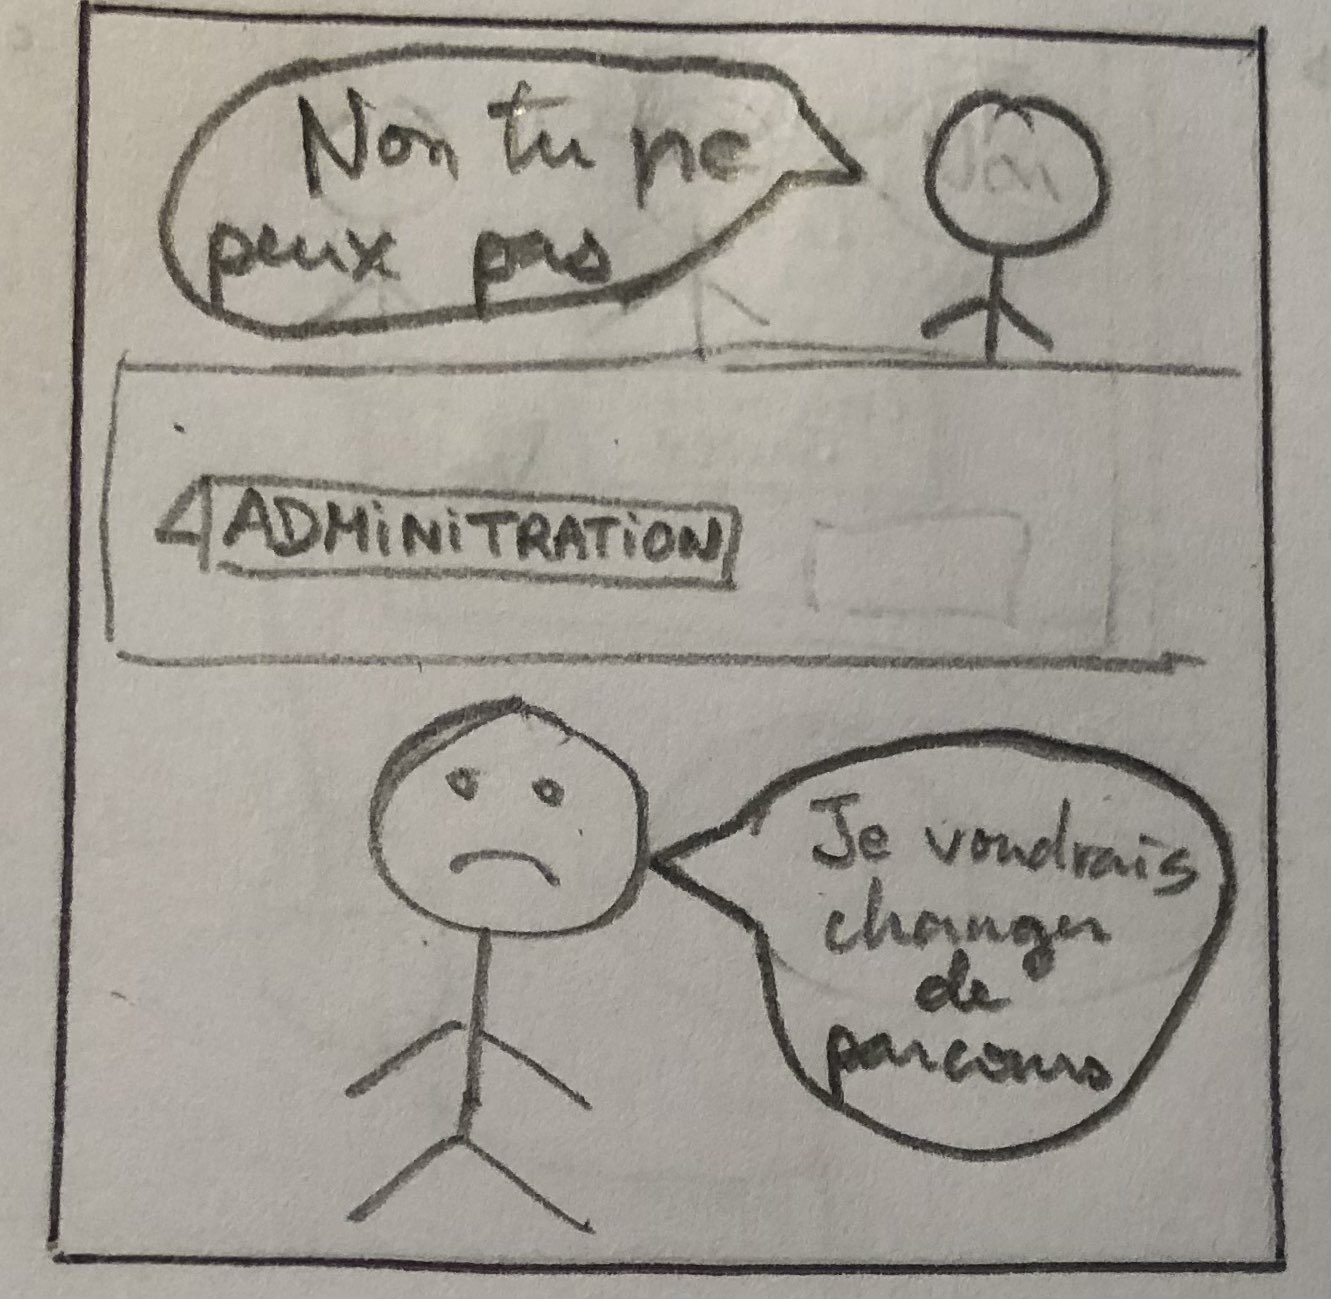 Non tu ne
peux pas
ADMINITRATION
Je voudrais
changer
de
parcours